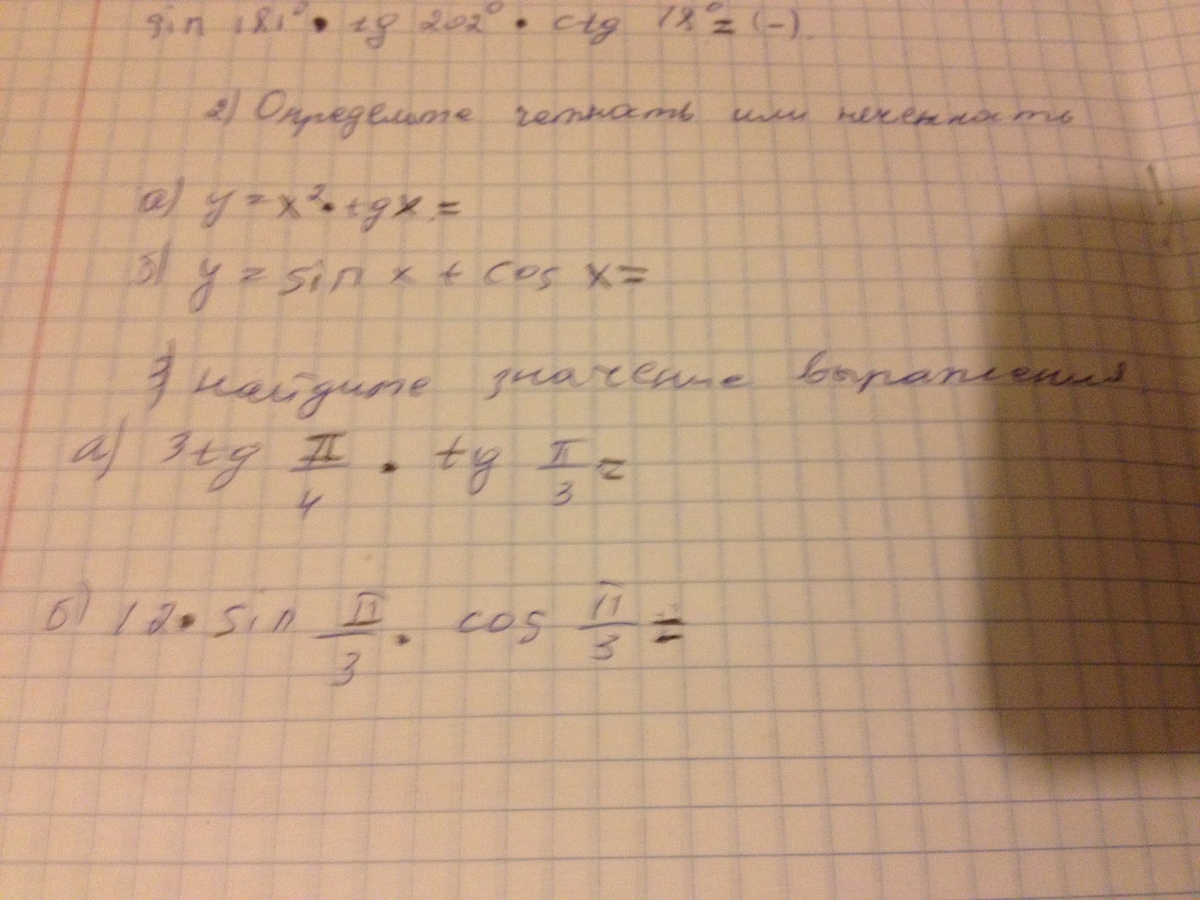 sin 181° • tg 202° • ctg 18° = (-)
2) Определите четность или нечетность
а) y = x² • tg x =
б) y = sin x + cos x =
3) найдите значение выражения
а) 3tg π/4 • tg π/3 =
б) 12 • sin π/3 • cos π/3 =